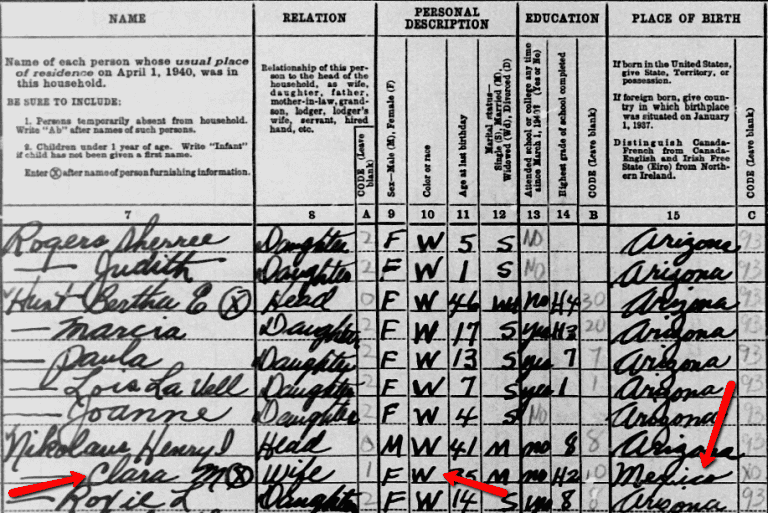 NAME
RELATION
PERSONAL DESCRIPTION
EDUCATION
PLACE OF BIRTH
Name of each person whose usual place of residence on April 1, 1940, was in this household.
BE SURE TO INCLUDE:
1. Persons temporarily absent from household. Write "Ab" after names of such persons.
2. Children under 1 year of age. Write "Infant" if child has not been given a first name.
Enter ⓧ after name of person furnishing information.
Relationship of this person to the head of the household, as wife, daughter, father, mother-in-law, grandson, lodger, lodger's wife, servant, hired hand, etc.
CODE (Leave blank)
Sex—Male (M), Female (F)
Color or race
Age at last birthday
Marital status—Single (S), Married (M), Widowed (Wd), Divorced (D)
Attended school or college any time since March 1, 1940? (Yes or No)
Highest grade of school completed
CODE (Leave blank)
If born in the United States, give State, Territory, or possession.
If foreign born, give country in which birthplace was situated on January 1, 1937.
Distinguish Canada-French from Canada-English and Irish Free State (Eire) from Northern Ireland.
CODE (Leave blank)
7 8 A 9 10 11 12 13 14 B 15 C
Rogers Sherree Daughter 2 F W 5 S NO Arizona 93
— Judith Daughter 2 F W 1 S NO Arizona 93
Hunt Bertha E ⓧ Head 0 F W 46 Wd no H4 30 Arizona 93
— Marcia Daughter 2 F W 17 S yes H3 20 Arizona 93
— Paula Daughter 2 F W 13 S yes 7 7 Arizona 93
— Lois La Vell Daughter 2 F W 7 S yes 1 1 Arizona 93
— Joanne Daughter 2 F W 4 S NO Arizona 93
Nikolaus Henry J Head 0 M W 41 M no 8 8 Arizona 93
— Clara M ⓧ Wife 1 F W 35 M no H2 10 Mexico X0
— Roxie L Daughter 2 F W 14 S yes 8 8 Arizona 93